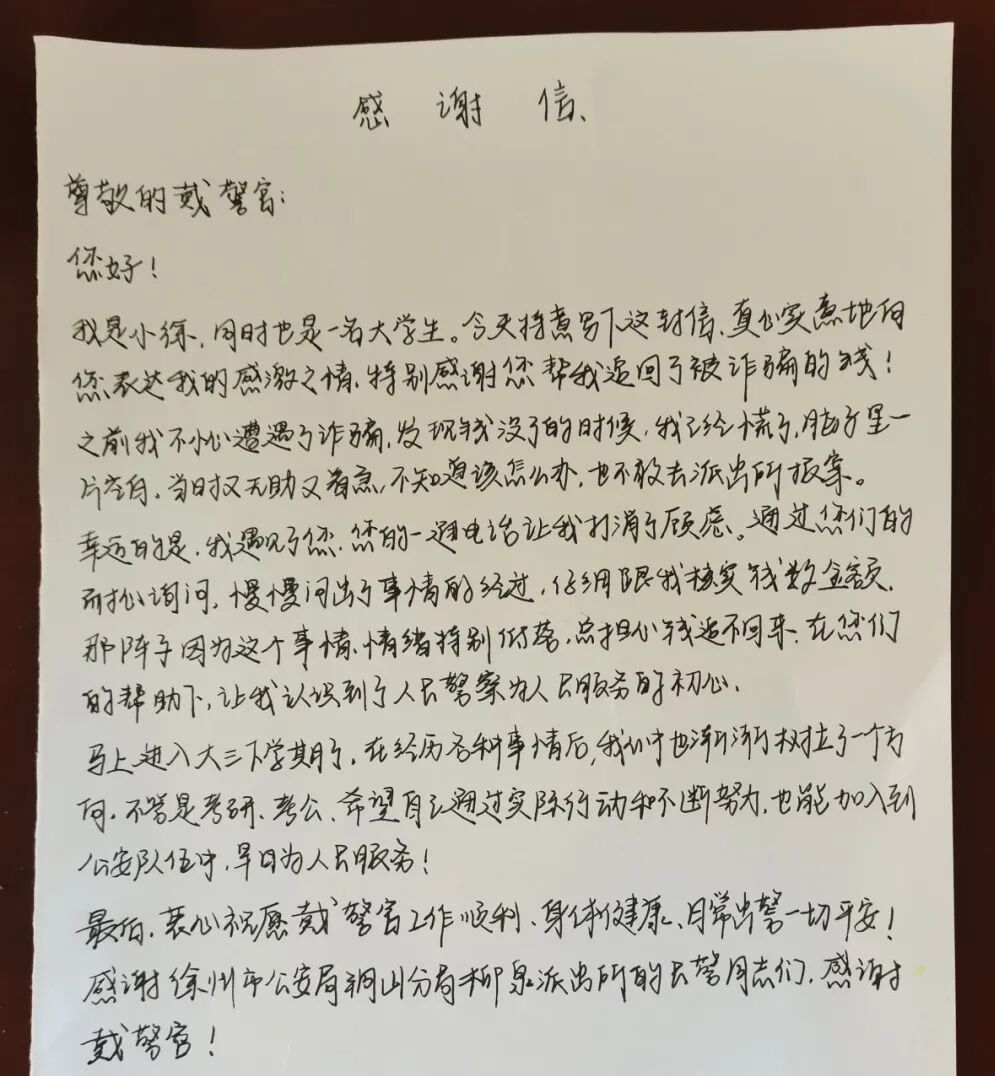 感谢信
尊敬的戴警官:
您好!
我是小徐,同时也是一名大学生。今天特意写下这封信,真心实意地向
您表达我的感激之情,特别感谢您帮我追回了被诈骗的钱!
之前我不小心遭遇了诈骗,发现钱没了的时候,我已经慌了,脑子里一
片空白。当时又无助又着急,不知道该怎么办,也不敢去派出所报案。
幸运的是,我遇见了您,您的一通电话让我打消了顾虑。通过您们的
耐心询问,慢慢问出了事情的经过,仔细跟我核实钱数金额,
那阵子因为这个事情,情绪特别低落,总担心钱追不回来、在您们
的帮助下,让我认识到了人民警察为人民服务的初心,
马上进入大三下学期了,在经历各种事情后,我心中也渐渐树立了一个方
向,不管是考研、考公、希望自己通过实际行动和不断努力,也能加入到
公安队伍中,早日为人民服务!
最后,衷心祝愿戴警官工作顺利、身体健康、日常出警一切平安!
感谢徐州市公安局铜山分局柳泉派出所的民警同志们,感谢
戴警官!